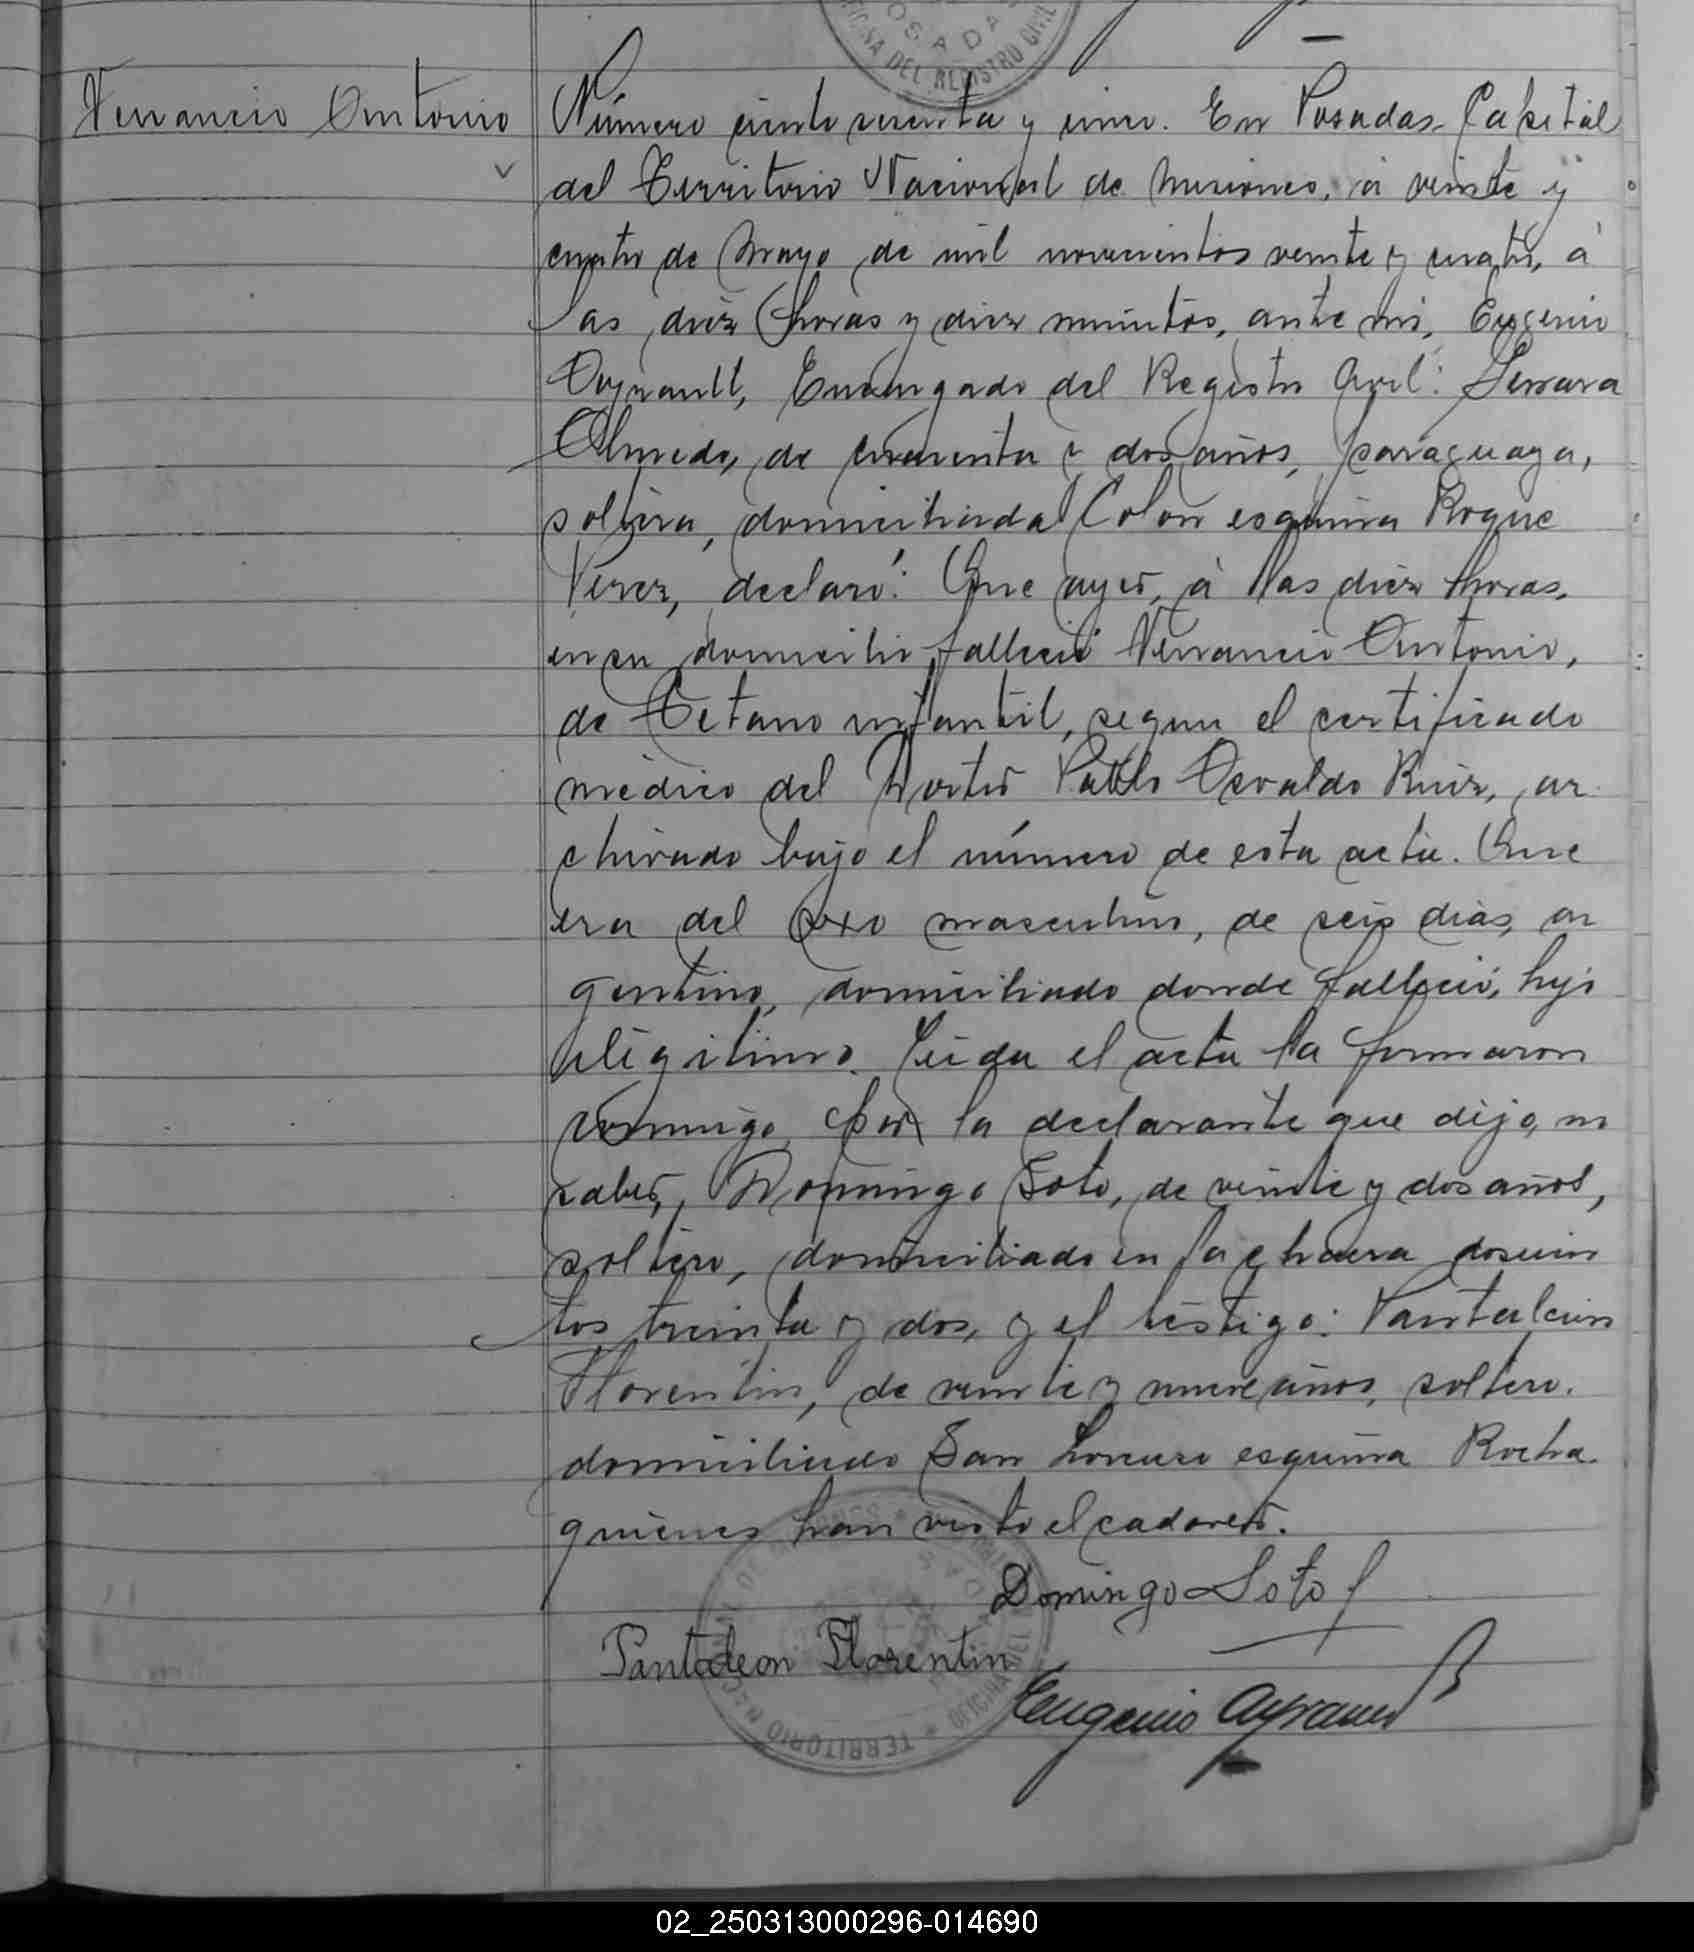 POSADAS
OFICINA DEL REGISTRO CIVIL
Venancio Antonio
Número ciento sesenta y cinco. En Posadas, Capital
del Territorio Nacional de Misiones, á veinte y
cuatro de Mayo de mil novecientos veinte y cuatro, á
las diez horas y diez minutos, ante mi, Eugenio
Ayrault, Encargado del Registro Civil:
Olmedo, de cuarenta y dos años, paraguaya,
soltera, domiciliada Colon esquina Roque
Perez, declaró: Que ayer, á las diez horas,
en su domicilio falleció Venancio Antonio,
de Tetano infantil, segun el certificado
médico del Doctor Pablo Osvaldo Ruiz, ar
chivado bajo el número de esta acta. Que
era del sexo masculino, de seis dias, ar
gentino, domiciliado donde falleció, hijo
ilegitimo. Leida el acta la firmaron
conmigo, por la declarante que dijo, no
saber, Domingo Soto, de veinte y dos años,
soltero, domiciliado en la chacra doscien
tos treinta y dos, y el testigo: Pantaleón
Florentin, de veinte y nueve años, soltero,
domiciliado San Lorenzo esquina Rocha.
quienes han visto el cadaver.
Domingo Soto
Pantaleon Florentin
Eugenio Ayrault
TERRITORIO NACIONAL DE MISIONES
OFICINA DEL
02_250313000296-014690